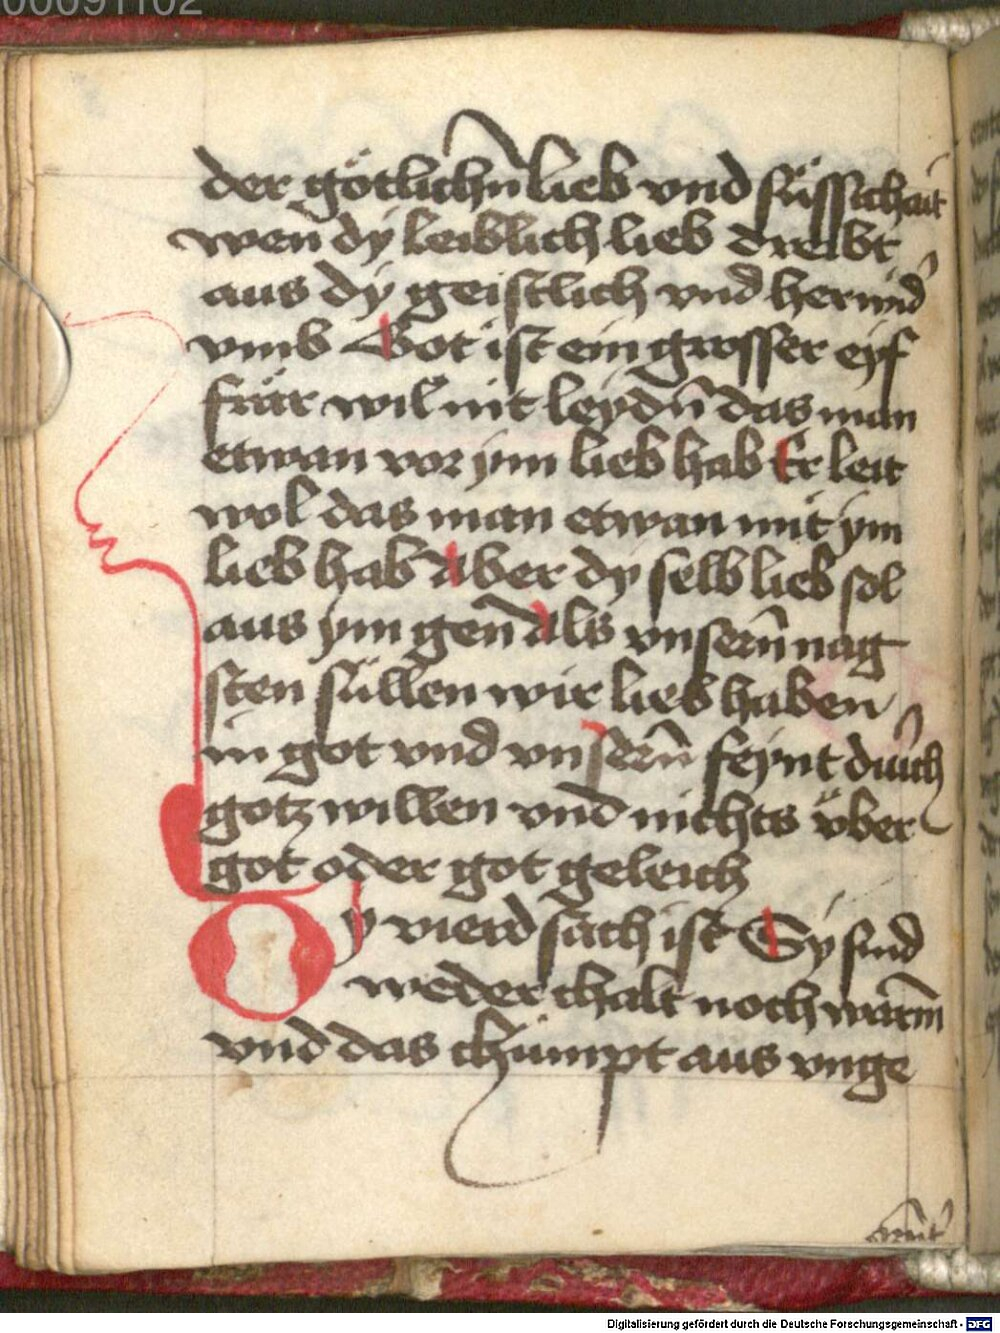 00091102
der götlichn̄ lieb vnd süsschait
wen̄ dy leiblich lieb dreibt
aus dÿ geistlich vnd herwid
vmb Got ist ein grosser eyf
frär wil nit leydn̄ das man
etwan vor ÿm lieb hab Er leit
wol das man etwan mit ym
lieb hab Aber dÿ selb lieb sol
aus ym gen̄ Als vnsern̄ nag
sten süllen wir lieb haben
in got vnd vnsern̄ feÿnt durch
gotz willen vnd nichts über
got oder got geleich
Dy vierd sach ist Sy sind
weder chalt noch warm
vnd das chümpt aus vnge
Digitalisierung gefördert durch die Deutsche Forschungsgemeinschaft - DFG